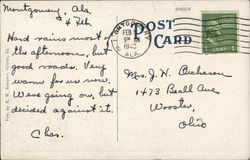 Montgomery, Ala.
4 Feb
Hard rains most
the afternoon, but
good roads. Very
warm for us now.
Was going on, but
decided against it.
Chas.
POST
CARD
MONTGOMERY
FEB
ALA.
1
Mrs. J. H. Buchanan
1473 Beall Ave
Wooster,
Ohio